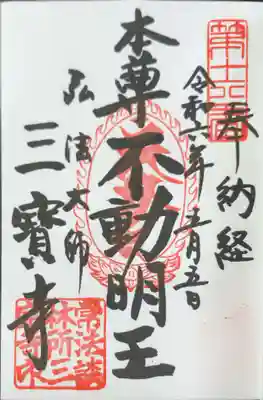 奉納経
令和六年五月五日
本尊
不動明王
弘法大師
三寶寺